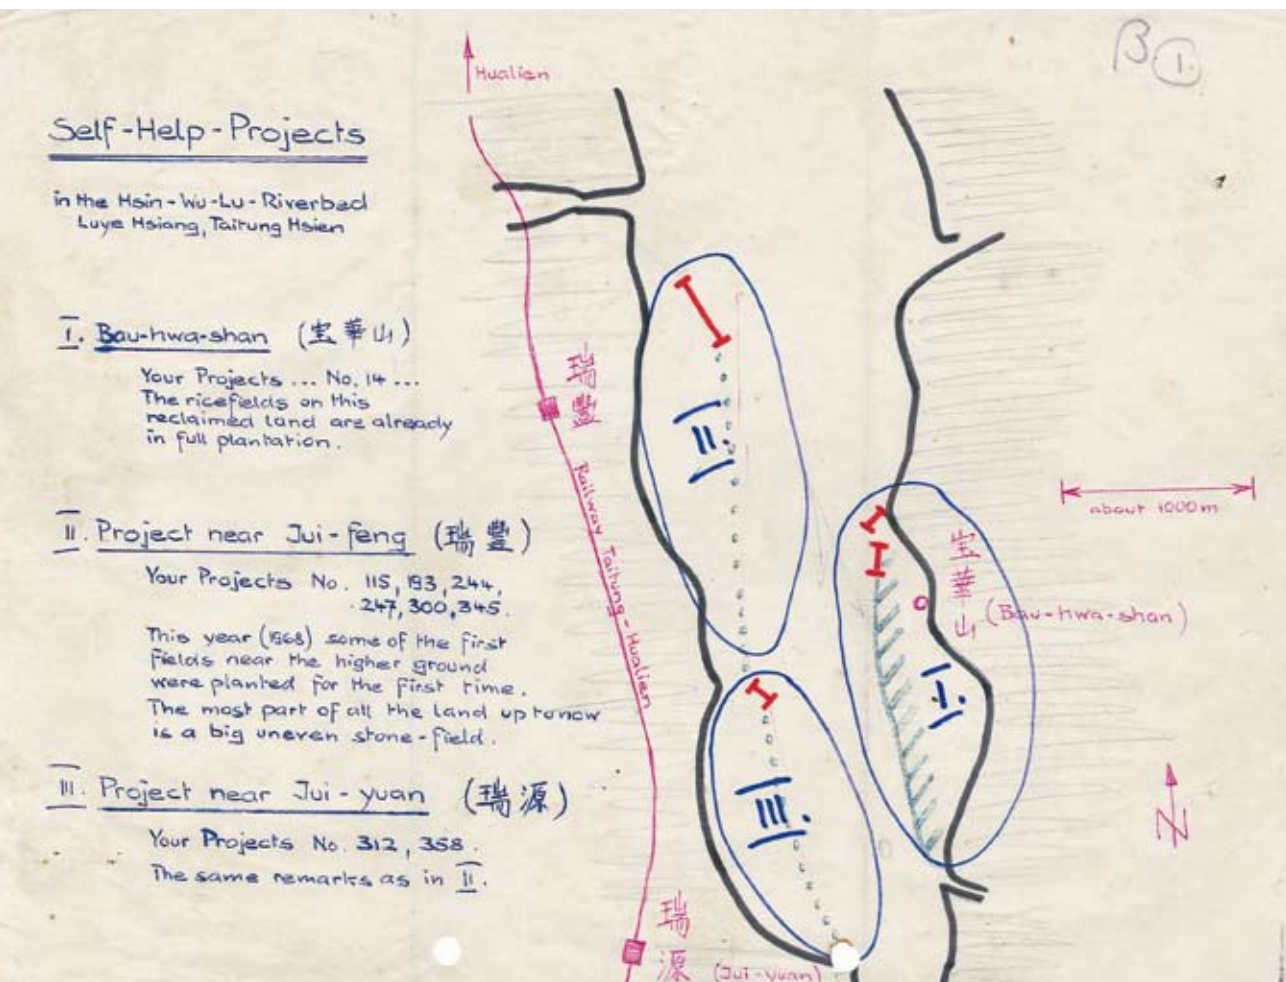 B 1.
Hualien
Self-Help-Projects
in the Hsin-Wu-Lu-Riverbed
Luye Hsiang, Taitung Hsien
I. Bau-hwa-shan (宝華山)
Your Projects ... No. 14 ...
The ricefields on this
reclaimed land are already
in full plantation.
II. Project near Jui-feng (瑞豐)
Your Projects No. 115, 193, 244,
247, 300, 345.
This year (1968) some of the first
fields near the higher ground
were planted for the first time.
The most part of all the land up to now
is a big uneven stone-field.
III. Project near Jui-yuan (瑞源)
Your Projects No. 312, 358.
The same remarks as in II.
瑞豐
Railway Taitung-Hualien
瑞源
(Jui-yuan)
II
III
I
宝華山
(Bau-hwa-shan)
about 1000m
N